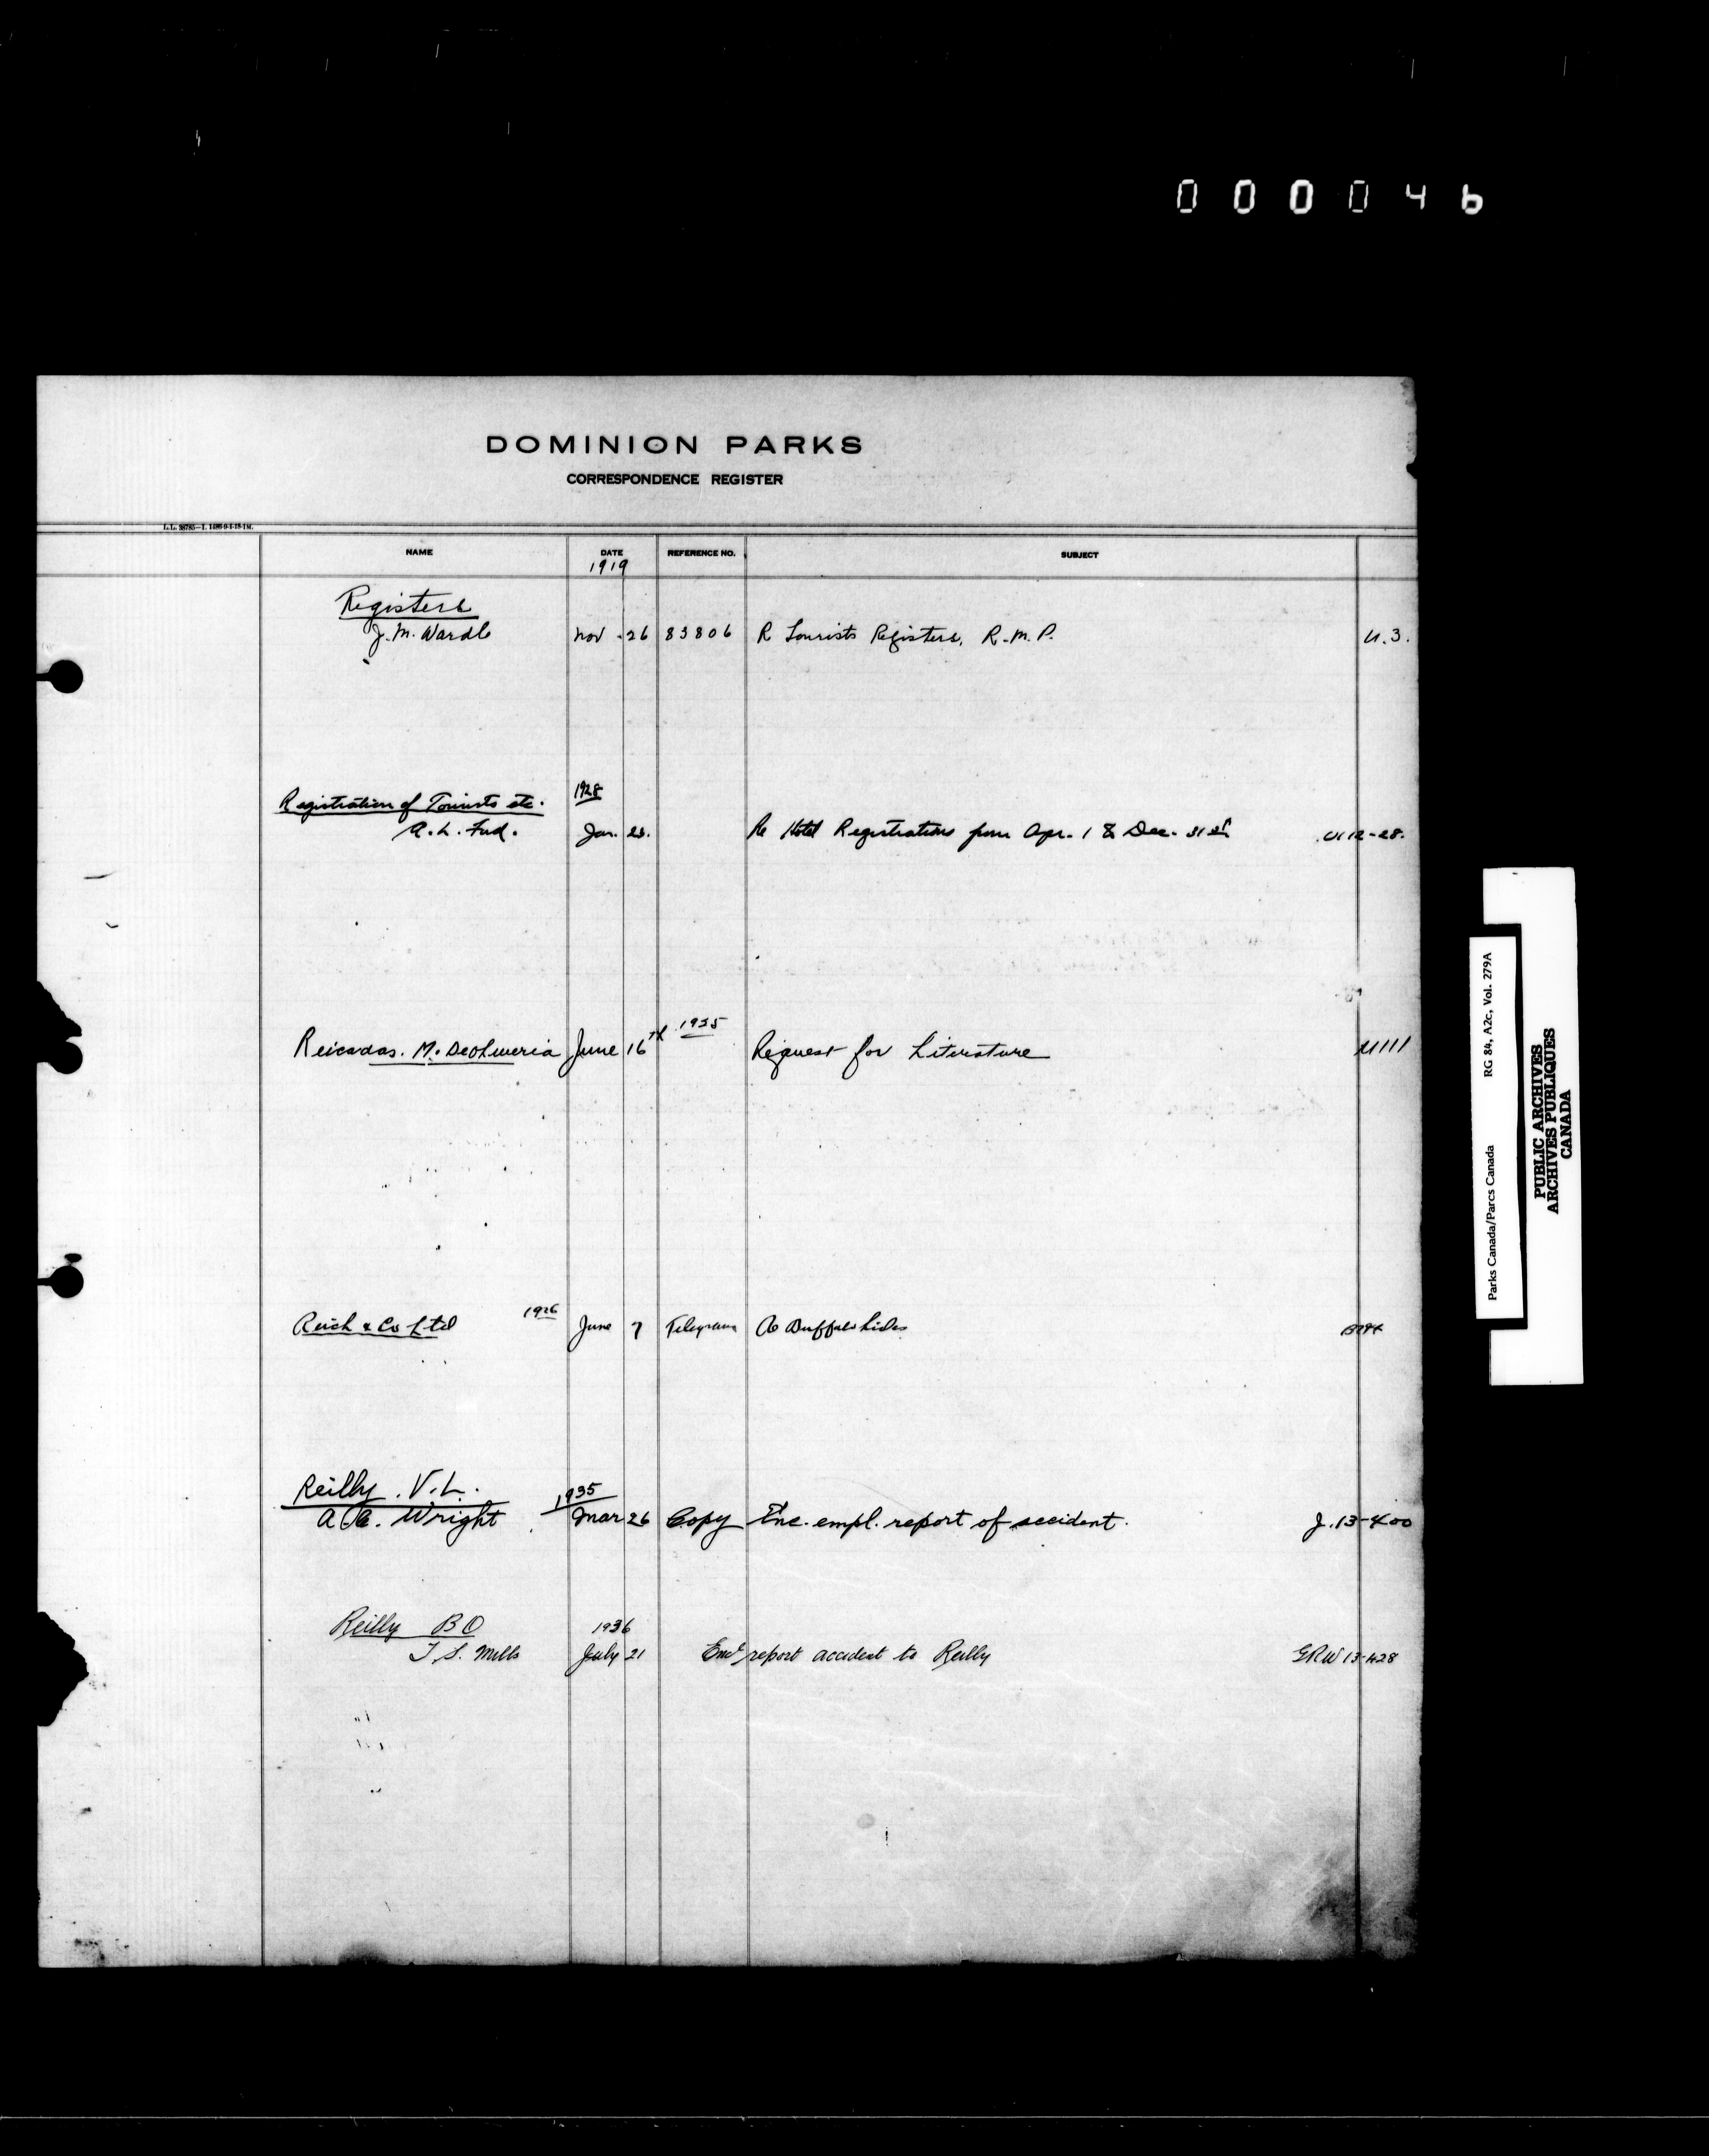 000046
DOMINION PARKS
CORRESPONDENCE REGISTER
L.L. 38785—I. 1486 9-1-18-1M.
NAME DATE REFERENCE NO. SUBJECT
1919
Registers
J. M. Wardle Nov - 26 83806 R Tourists Registers, R.M.P. U.3.
Registration of Tourists etc. 1928
A. L. Jan. Re Hotel Registrations from Apr. 1 & Dec. 31st U112-28.
1935
Reicadas. M. June 16th Request for Literature U111
Reich & Co Ltd 1926 June 7 Telegram Re Buffalo hides B294
Reilly. V. L. 1935
Wright Mar 26 Copy Enc. empl. report of accident. J.13-400
Reilly B O 1936
T S. Mills July 21 Encl report accident to Reilly GRW 13-428
Parks Canada/Parcs Canada RG 84, A2c, Vol. 279A
PUBLIC ARCHIVES
ARCHIVES PUBLIQUES
CANADA